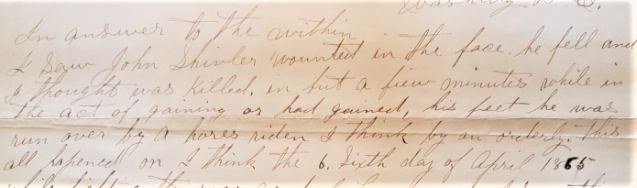 Washing D.C.
In answer to the within
I saw John Shivler wounted in the face. he fell and
I thought was killed. in but a fiew minutes while in
the act of gaining or had gained, his feet he was
run over by a hores riden I think by an orderly. this
all hapened on I think the 6. Sixth day of April 1865